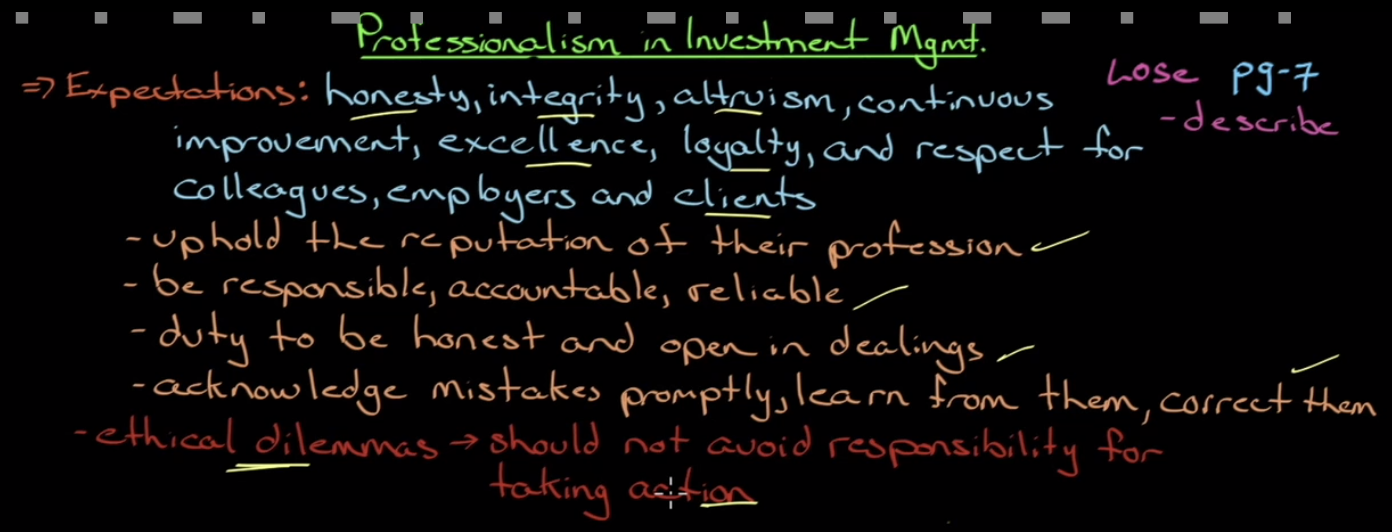 Professionalism in Investment Mgmt.
=> Expectations: honesty, integrity, altruism, continuous
improvement, excellence, loyalty, and respect for
colleagues, employers and clients
LOSE pg-7
-describe
- uphold the reputation of their profession
- be responsible, accountable, reliable
- duty to be honest and open in dealings
- acknowledge mistakes promptly, learn from them, correct them
- ethical dilemmas → should not avoid responsibility for
taking action